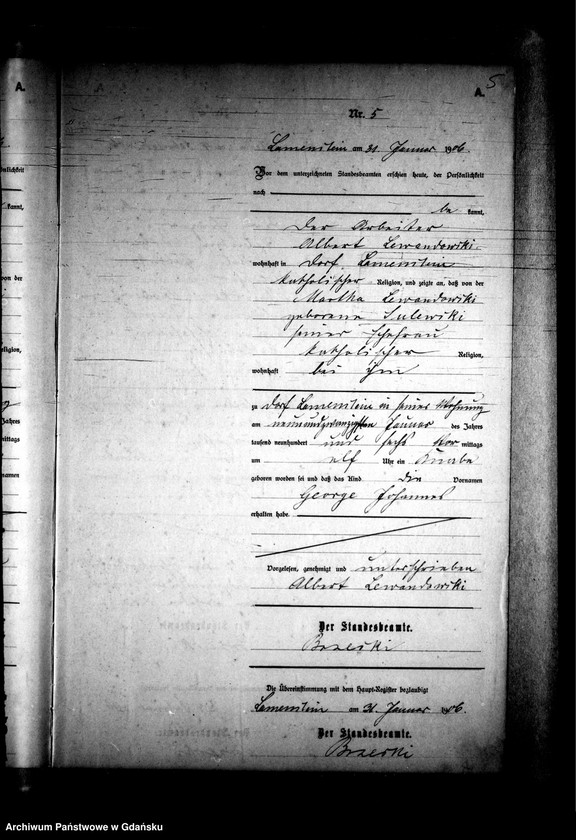 A.
5
A.
Nr. 5
Lamenstein am 31 Januar 1906.
Vor dem unterzeichneten Standesbeamten erschien heute, der Persönlichkeit
nach
be kannt,
Der Arbeiter
Albert Lewandowski
wohnhaft in Dorf Lamenstein
katholischer Religion, und zeigte an, daß von der
Martha Lewandowski
geborene Sulewski
seiner Ehefrau
katholischer Religion,
wohnhaft bei ihm
zu Dorf Lamenstein in seiner Wohnung
am neunundzwanzigsten Januar des Jahres
tausend neunhundert und sechs Vor mittags
um elf Uhr ein Knabe
geboren worden sei und daß das Kind die Vornamen
George Johannes
erhalten habe.
Vorgelesen, genehmigt und unterschrieben
Albert Lewandowski
Der Standesbeamte.
Die Übereinstimmung mit dem Haupt-Register beglaubigt
Lamenstein am 31. Januar 1906.
Der Standesbeamte.
Archiwum Państwowe w Gdańsku